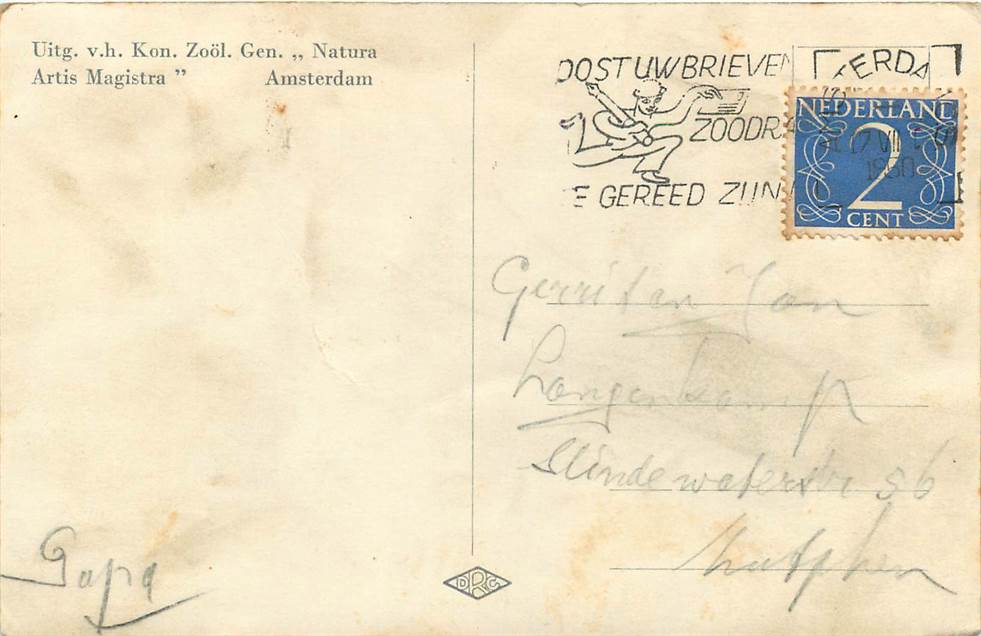 Uitg. v.h. Kon. Zoöl. Gen. „ Natura
Artis Magistra ” Amsterdam
POST UW BRIEVEN
ZOODRA
ZE GEREED ZIJN
ERDA
VII
1950
NEDERLAND
2
CENT
Gerrit en Jan
Langenkamp
36
Zutphen
Papa
DRGC